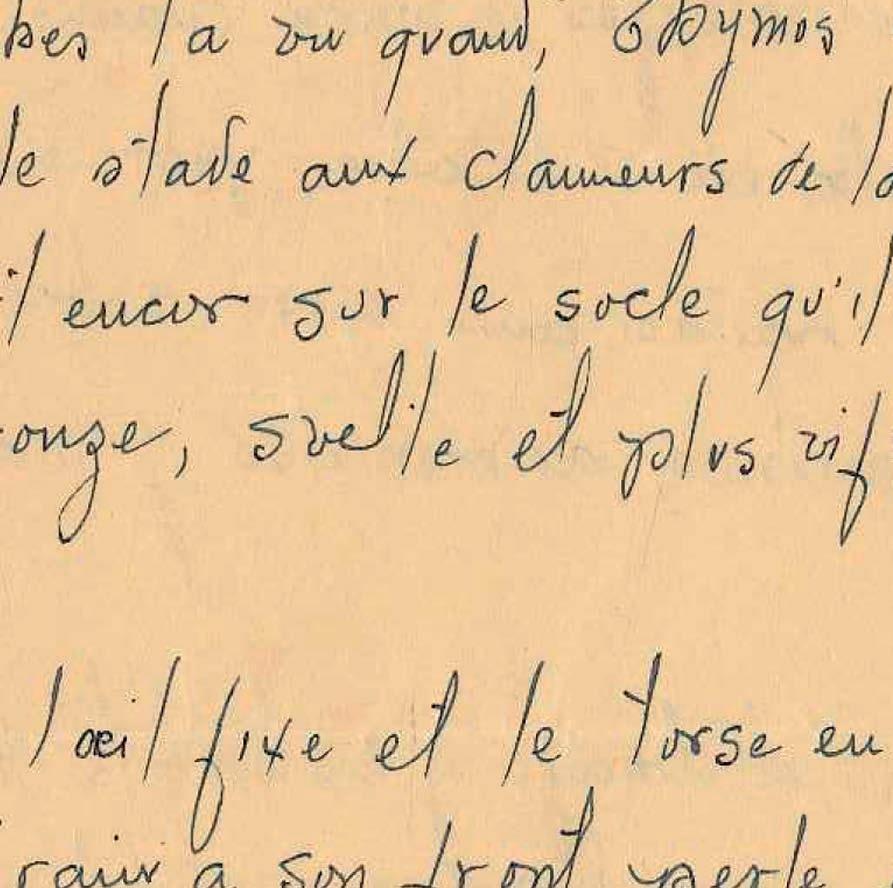 hes l a vu quand, Thymos
le stade aux clameurs de la
t encor sur le socle qu'il
onze, svelte et plus vif
l oeil fixe et le torse en
rain a son front perle